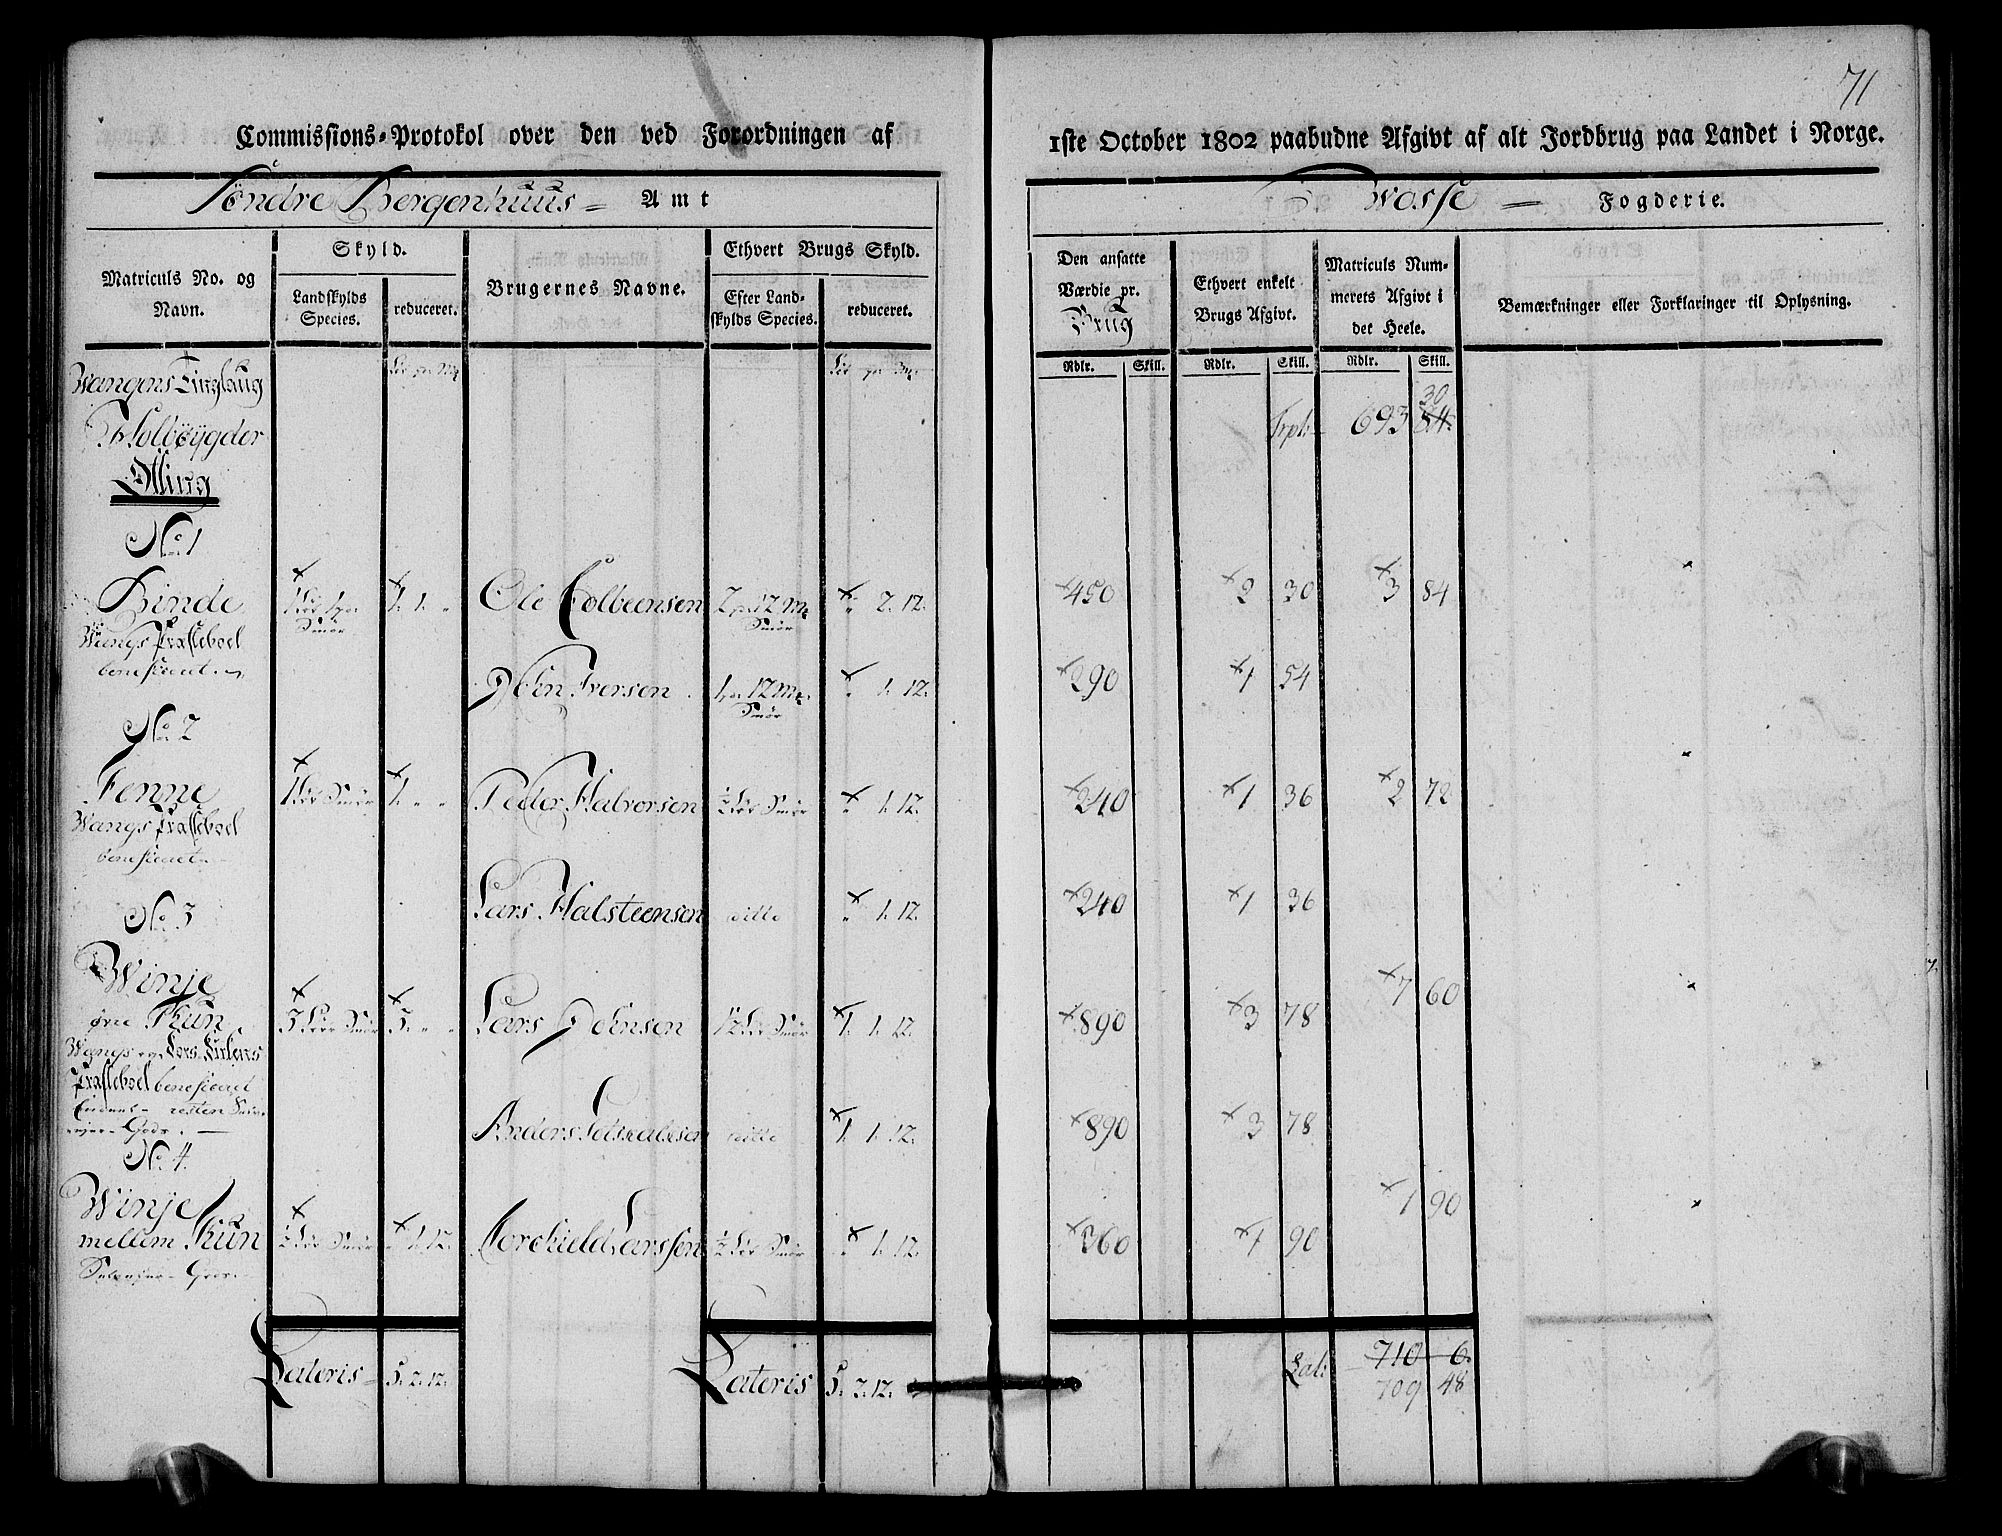 71
Commissions-Protokol over den ved Forordningen af 1ste October 1802 paabudne Afgivt af alt Jordbrug paa Landet i Norge.
Söndre Bergenhuus = Amt
Wosse — Fogderie.
Matriculs No. og Navn.
Skyld.
Landskylds Species.
reduceret.
Brugernes Navne.
Ethvert Brugs Skyld.
Efter Landskylds Species.
reduceret.
Den ansatte Værdie pr. Brug
Ethvert enkelt Brugs Afgivt.
Matriculs Nummerets Afgivt i det Heele.
Bemærkninger eller Forklaringer til Oplysning.
Rdlr. Skill. Rdlr. Skill. Rdlr. Skill.
Wangens Tinglaug
30
Trpt. 693 84.
Otting
No. 1
Binde 1. 1. " Ole Colbeensen 2 pr 12 mk " 2. 12. 450 2 30 3 84
Smör Smör
Wangs Præsteboel
beneficeret
John Iversen 1 pr 12 mk " 1. 12. 290 1 54
Smör
No. 2
Fenne 1 Löb Smör 1. " " Peder Halvorsen ½ Löb Smör " 1. 12. 240 1 36 2 72
Wangs Præsteboel
beneficeret
Lars Halsteensen ditto " 1. 12. 240 1 36
No. 3
Winje 7 60
Thun 3 Löber Smör 3. " " Lars Johnsen 1½ Löb Smör 1. 1. 12. 890 3 78
Wangs og
Præsteboel beneficeret
resten
Gods
Anders ditto 1. 1. 12. 890 3 78
No. 4.
Winje 1 90
mellem Thun ½ Löb Smör " 1. 12. Torchield Larssen ½ Löb Smör " 1. 12. 360 1 90
Lateris 5. 2. 12. Lateris 5. 2. 12. Lat: 710 6.
709 48